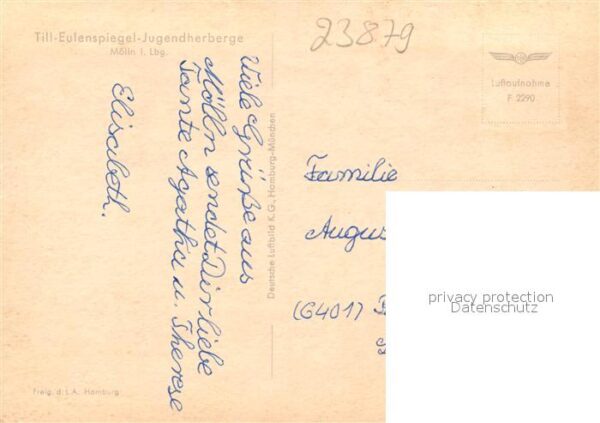 Till-Eulenspiegel-Jugendherberge
Mölln i. Lbg.
23879
Luftaufnahme
F 2290
Viele Grüße aus
Mölln sendet Dir liebe
Tante Agatha u. Therese
Elisabeth.
Deutsche Luftbild K. G., Hamburg-München
Familie
Augus
(6401)
privacy protection
Datenschutz
Freig. d. L.A. Hamburg